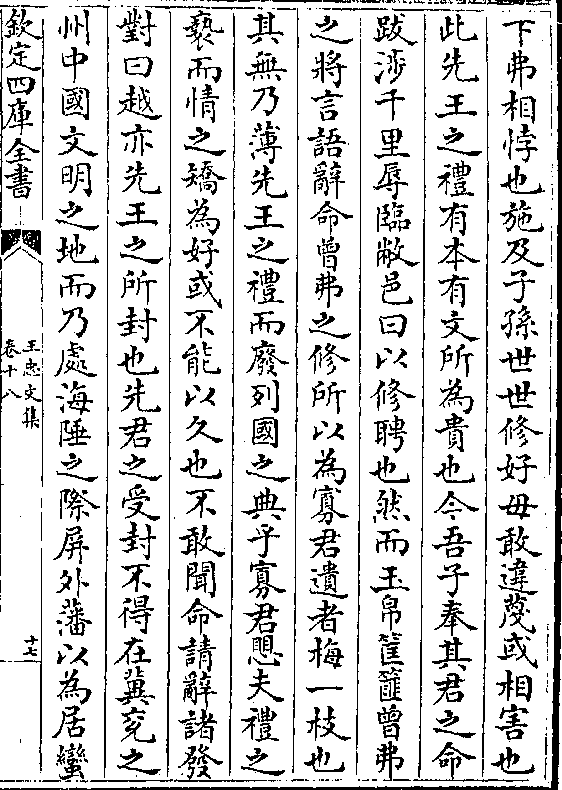 下弗相悖也施及子孫世世修好毋敢違蔑或相害也
此先王之禮有本有文所為貴也今吾子奉其君之命
跋涉千里辱臨敝邑曰以修聘也然而玉帛筐篚曾弗
之將言語辭命曾弗之修所以為寡君遺者梅一枝也
其無乃薄先王之禮而廢列國之典乎寡君愳夫禮之
褻而情之矯為好或不能以久也不敢聞命請辭諸發
對曰越亦先王之所封也先君之受封不得在冀兖之
州中國文明之地而乃處海陲之際屏外藩以為居蠻
欽定四庫全書
王忠文集
卷十八
十七